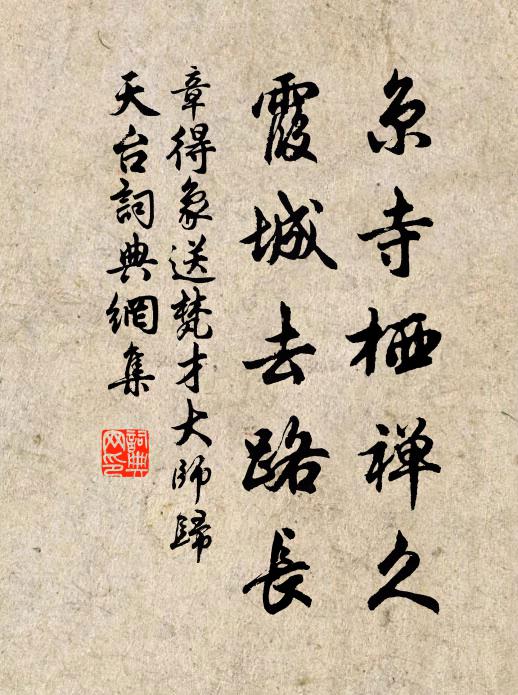 京寺栖禅久
霞城去路長
章得象送梵才大師歸
天台詞典網集
詞典
网印